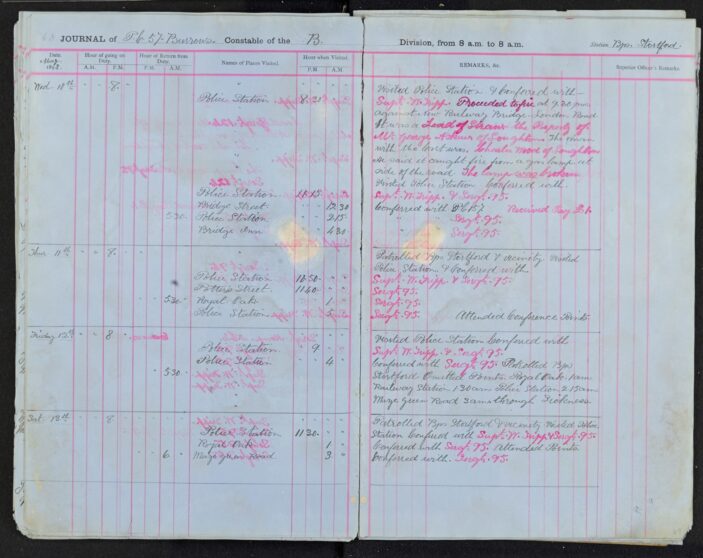 JOURNAL of Pb. 57. Burrows. Constable of the B. Division, from 8 a.m. to 8 a.m. Station Bps. Stortford
Date. Hour of going on Duty. Hour of Return from Duty. Names of Places Visited. Hour when Visited. REMARKS, &c. Superior Officer's Remarks.
A.M. P.M. P.M. A.M. P.M. A.M.
Wed. 10th 8
Police Station 8.20 Visited Police Station & Conferred with
Supt. W. Tripp. Proceeded to fire at 9.20 pm
against New Railway Bridge London Road
It was a Load of Straw the Property of
Mr. George
with the Cart was Charles Wood of
He said it caught fire from a gas lamp at
side of the road The lamp was broken
Police Station 11.15 Visited Police Station Conferred with
Supt. W. Tripp. & Sergt. 95.
Bridge Street 12.30 Conferred with Received Pay
5.30 Police Station 2.15 " Sergt. 95.
Bridge Inn 4.30 " Sergt. 95.
Thur 11th 8 Patrolled Bps. Stortford & vicinity Visited
Police Station & Conferred with
Police Station 10.50 Supt. W. Tripp & Sergt. 95.
Potter Street 11.40 Sergt 95.
5.30 Royal Oak 1 Sergt. 95.
Police Station 5 Sergt. 95. Attended Conference Points.
Friday 12th 8 Visited Police Station Conferred with
Police Station 9 Supt. W. Tripp. & Sergt. 95.
Police Station 4 Conferred with Sergt. 95. Patrolled Bps
5.30 Stortford Omitted Points Royal Oak 1 am
Railway Station 1.30 am Police Station 2.15 am
Maze Green Road 3 am through Sickness.
Sat. 13th 8 Patrolled Bps Stortford & vicinity Visited Police
Police Station 11.30 Station Conferred with Supt. W. Tripp & Sergt. 95.
Royal Oak 1 Conferred with Sergt. 95. Attended Points
6 Maze Green Road 3 Conferred with. Sergt. 95.